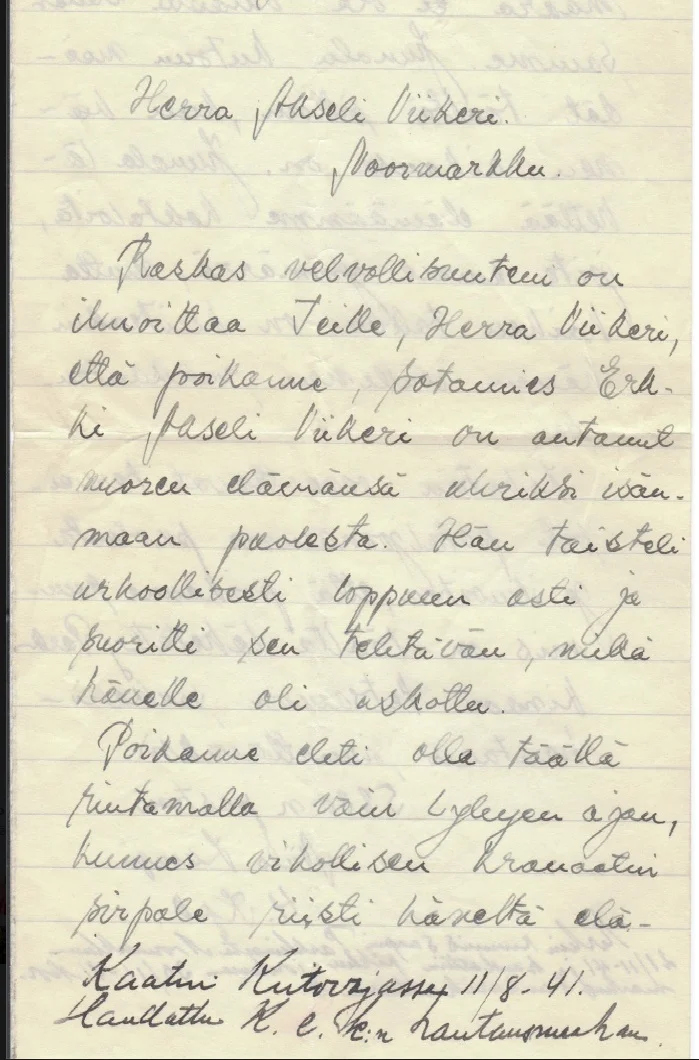 Herra Akseli Viikeri.
Noormarkku.
Raskas velvollisuuteni on
ilmoittaa Teille, Herra Viikeri,
että poikanne, sotamies Erk-
ki Akseli Viikeri on antanut
nuoren elämänsä uhriksi isän-
maan puolesta. Hän taisteli
urhoollisesti loppuun asti ja
suoritti sen tehtävän, mikä
hänelle oli uskottu.
Poikanne ehti olla täällä
rintamalla vain lyhyen ajan,
kunnes vihollisen kranaatin
sirpale riisti häneltä elä-
Kaatui 11/8-41.
Haudattu K. e. k:n hautausmaahan.